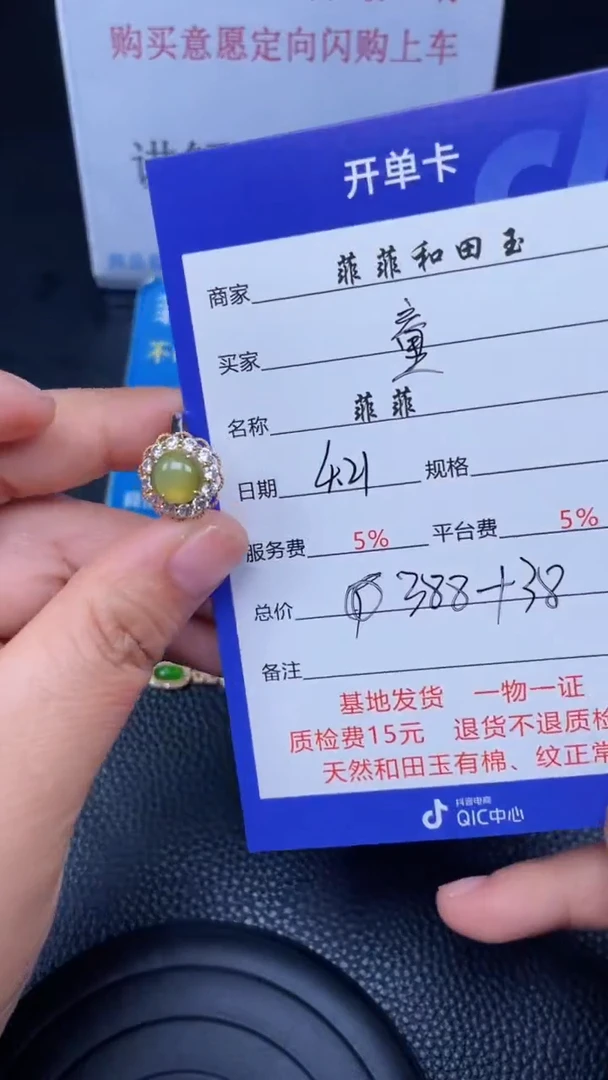 购买意愿定向闪购上车
开单卡
商家 菲菲和田玉
买家 童
名称 菲菲
日期 4.21 规格
服务费 5% 平台费 5%
总价 388+38
备注
基地发货 一物一证
质检费15元 退货不退质检
天然和田玉有棉、纹正常
抖音电商
QIC中心